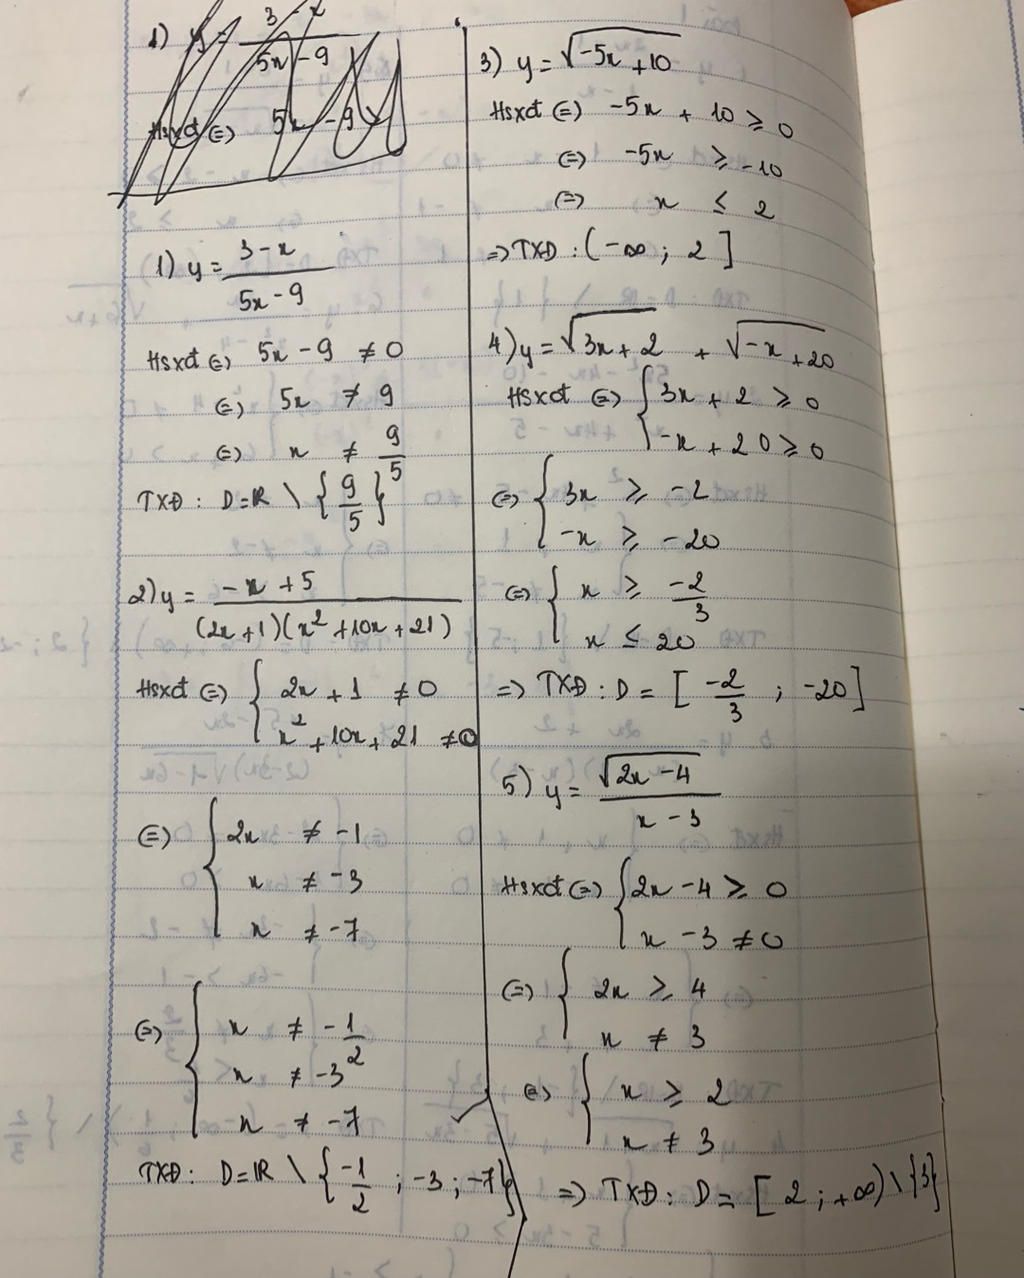 1) y = 3 - x / 5x - 9
Hsxđ ⇔ 5x - 9
1) y = 3 - x / 5x - 9
Hsxđ ⇔ 5x - 9 ≠ 0
⇔ 5x ≠ 9
⇔ x ≠ 9/5
TXĐ : D = R \ { 9/5 }
2) y = -x + 5 / (2x + 1)(x² + 10x + 21)
Hsxđ ⇔ { 2x + 1 ≠ 0
x² + 10x + 21 ≠ 0
⇔ { 2x ≠ -1
x ≠ -3
x ≠ -7
⇔ { x ≠ -1/2
x ≠ -3
x ≠ -7
TXĐ : D = R \ { -1/2 ; -3 ; -7 }
3) y = √(-5x + 10)
Hsxđ ⇔ -5x + 10 ≥ 0
⇔ -5x ≥ -10
⇔ x ≤ 2
⇒ TXĐ : (-∞ ; 2]
4) y = √(3x + 2) + √(-x + 20)
Hsxđ ⇔ { 3x + 2 ≥ 0
-x + 20 ≥ 0
⇔ { 3x ≥ -2
-x ≥ -20
⇔ { x ≥ -2/3
x ≤ 20
⇒ TXĐ : D = [ -2/3 ; -20 ]
5) y = √(2x - 4) / x - 3
Hsxđ ⇔ { 2x - 4 ≥ 0
x - 3 ≠ 0
⇔ { 2x ≥ 4
x ≠ 3
⇔ { x ≥ 2
x ≠ 3
⇒ TXĐ : D = [ 2 ; +∞) \ {3}